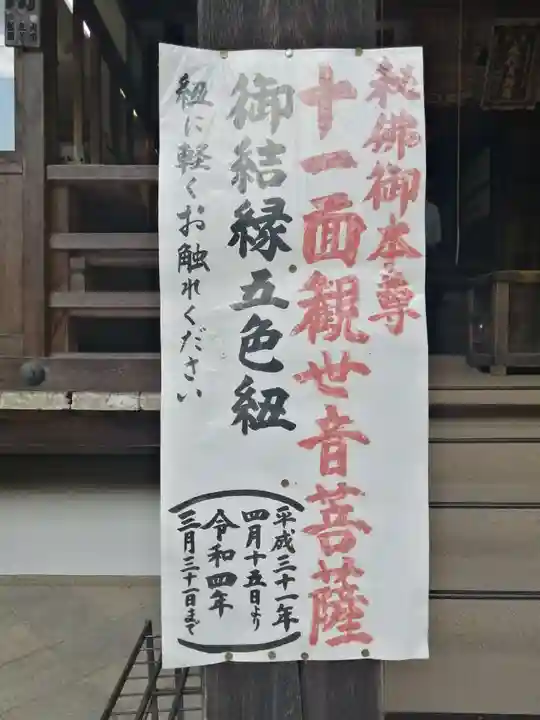 秘佛御本尊
十一面観世音菩薩
御結縁五色紐
紐に軽くお触れください
平成三十一年
四月十五日より
令和四年
三月三十一日まで